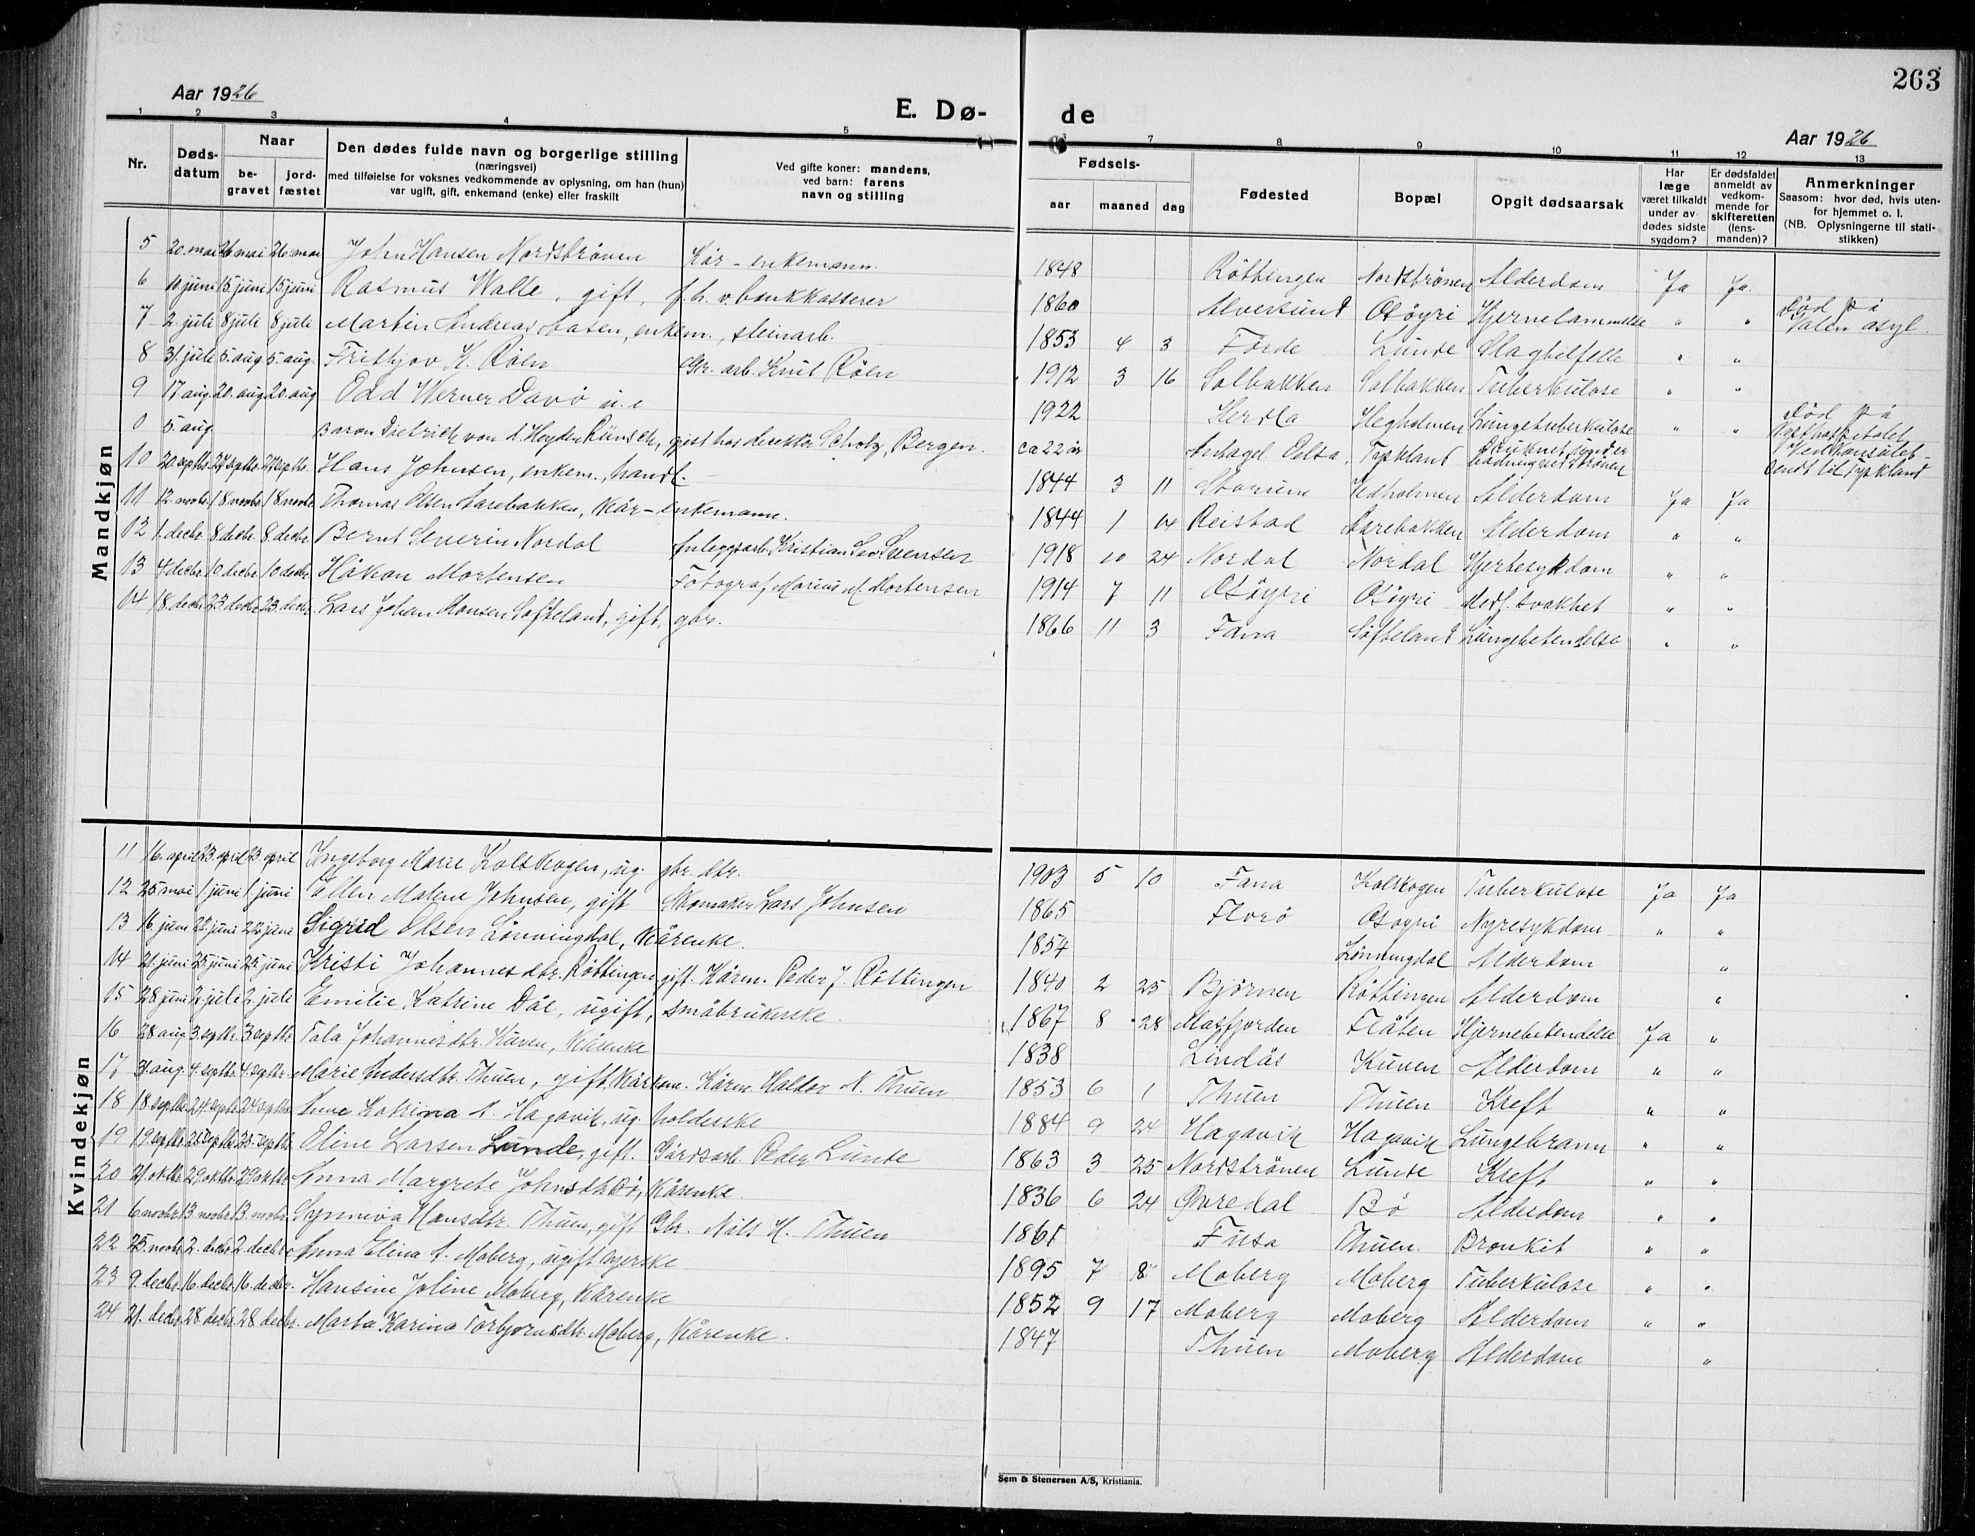 263
Aar 1926
E. Dø-
de
Aar 1926
1 2 3 4 5 6 7 8 9 10 11 12 13
Nr.
Døds-
datum
Naar
be-
gravet
jord-
fæstet
Den dødes fulde navn og borgerlige stilling
(næringsvei)
med tilføielse for voksnes vedkommende av oplysning, om han (hun)
var ugift, gift, enkemand (enke) eller fraskilt
Ved gifte koner: mandens,
ved barn: farens
navn og stilling
Fødsels-
aar maaned dag
Fødested
Bopæl
Opgit dødsaarsak
Har
læge
været tilkaldt
under av-
dødes sidste
sygdom?
Er dødsfaldet
anmeldt av
vedkom-
mende for
skifteretten
(lens-
manden)?
Anmerkninger
Saasom: hvor død, hvis uten-
for hjemmet o. l.
(NB. Oplysningerne til stati-
stikken)
Mandkjøn
5 20. mai 26 mai 26. mai John Hansen Nordstrønen Kår-enkemann. 1848 Røttingen Nordstrønen Alderdom Ja Ja.
6 11 juni 15 juni 15 juni Rasmus Walle, gift, f.h.v. bankkasserer 1860 Alversund Osøyri Hjernelammelse " " Død på Valen asyl.
7 2. juli 8 juli 8 juli Martin Andreas Aasen, enkem., steinarb. 1853 4 3 Førde Lunde Slagtilfelle " "
8 31. juli 5. aug 5. aug. Frithjov K. Røen Gr. arb. Knut Røen 1912 3 16 Solbakken Solbakken Tuberkulose " "
9 17 aug. 20. aug 20. aug Odd Werner Davø u.e 1922 Herdla Hegholmen Lungetuberkulose " " Død på Kysthospitalet
0 5. aug. Baron Dietrich von d. Heyden Rünsch, gjest hos direktør Schoby, Bergen. ca 22 år Tyskland Druknet under badning ved Strønen sendt til Tyskland
10 20 septbr. 27 septbr. 27 septbr. Hans Johnsen, enkem., handl. 1844 3 11 Storum Vedholmen Alderdom Ja Ja
11 12. novbr. 18 novbr. 18 novbr. Thomas Olsen Aarebakken, kår-enkemann. 1844 1 14 Reistad Aarebakken Alderdom " "
12 1. decbr. 8 decbr. 8 decbr. Bernt Severin Nordal Anleggsarb. Kristian Sørensen 1918 10 24 Nordal Nordal Hjertesykdom " "
13 4 decbr. 10 decbr. 10 decbr. Håkon Mortensen Fotograf Marius M. Mortensen 1914 7 11 Osøyri Osøyri Medf. svakhet " "
14 18. decbr. 23. decbr. 23. decbr. Lars Johan Monsen Søfteland, gift, gbr. 1866 11 3 Fana Søfteland Lungebetendelse " "
Kvindekjøn
11 16. april 23. april 23. april Ingeborg Marie Kolskogen, ug. gbr. dtr. 1903 5 10 Fana Kolskogen Tuberkulose Ja Ja
12 25 mai 1 juni 1. juni Ellen Malene Johnsen, gift Skomaker Lars Johnsen 1865 Florø Osøyri Nyresykdom " "
13 16. juni 22. juni 22. juni Sigrid Olsen Lønningdal, Kårenke. 1854 Lønningdal Alderdom "
14 21. juni 25. juni 25. juni Kristi Johannesdtr. Røttingen, gift. Kårm. Peder J. Røttingen 1840 2 25 Bjørnen Røttingen Alderdom "
15 28 juni 2 juli 2. juli Emilie Katrine Dåe, ugift, småbrukerske. 1867 8 28 Masfjorden Flåten Hjernebetendelse Ja "
16 28 aug. 3. septbr. 3. septbr. Tala Johannesdtr. Kuven, Kårenke 1838 Lindås Kuven Alderdom " "
17 31 aug. 4. septbr. 4. septbr. Marie Andersdtr. Thuen, gift, Kårkone. Kårm. Haldor N. Thuen 1853 6 1 Thuen Thuen Kreft " "
18 18 septbr. 24. septbr. 24 septbr. Anne Katrina A. Hagavik, ug. holderske 1884 9 24 Hagavik Hagavik Lungebrann " "
19 19 septbr. 25 septbr. 25. septbr. Oline Larsen Lunde, gift. Gårdsarb. Peder Lunde 1863 3 25 Nordstrønen Lunde Kreft " "
20 21. oktbr. 29 oktbr. 29 oktbr. Anna Margrete Johnsdtr. Bø, Kårenke. 1836 6 24 Øvredal Bø Alderdom " "
21 6 novbr. 13. novbr. 13. novbr. Synneva Hansdtr. Thuen, gift Gbr. Nils H. Thuen 1861 Fusa Thuen. Bronkit " "
22 25. novbr. 2. decbr. 2. decbr. Anna Elina A. Moberg, ugift syerske 1895 7 8 Moberg Moberg Tuberkulose " "
23 9. decbr. 16. decbr. 16. decbr. Hansine Joline Moberg, Kårenke 1852 9 17 Moberg Moberg Alderdom " "
24 21. decbr. 28. decbr. 28 decbr. Marta Karina Torbjornsdtr. Moberg, Kårenke. 1847 Thuen Moberg Alderdom "
Sem & Stenersen A/S, Kristiania.